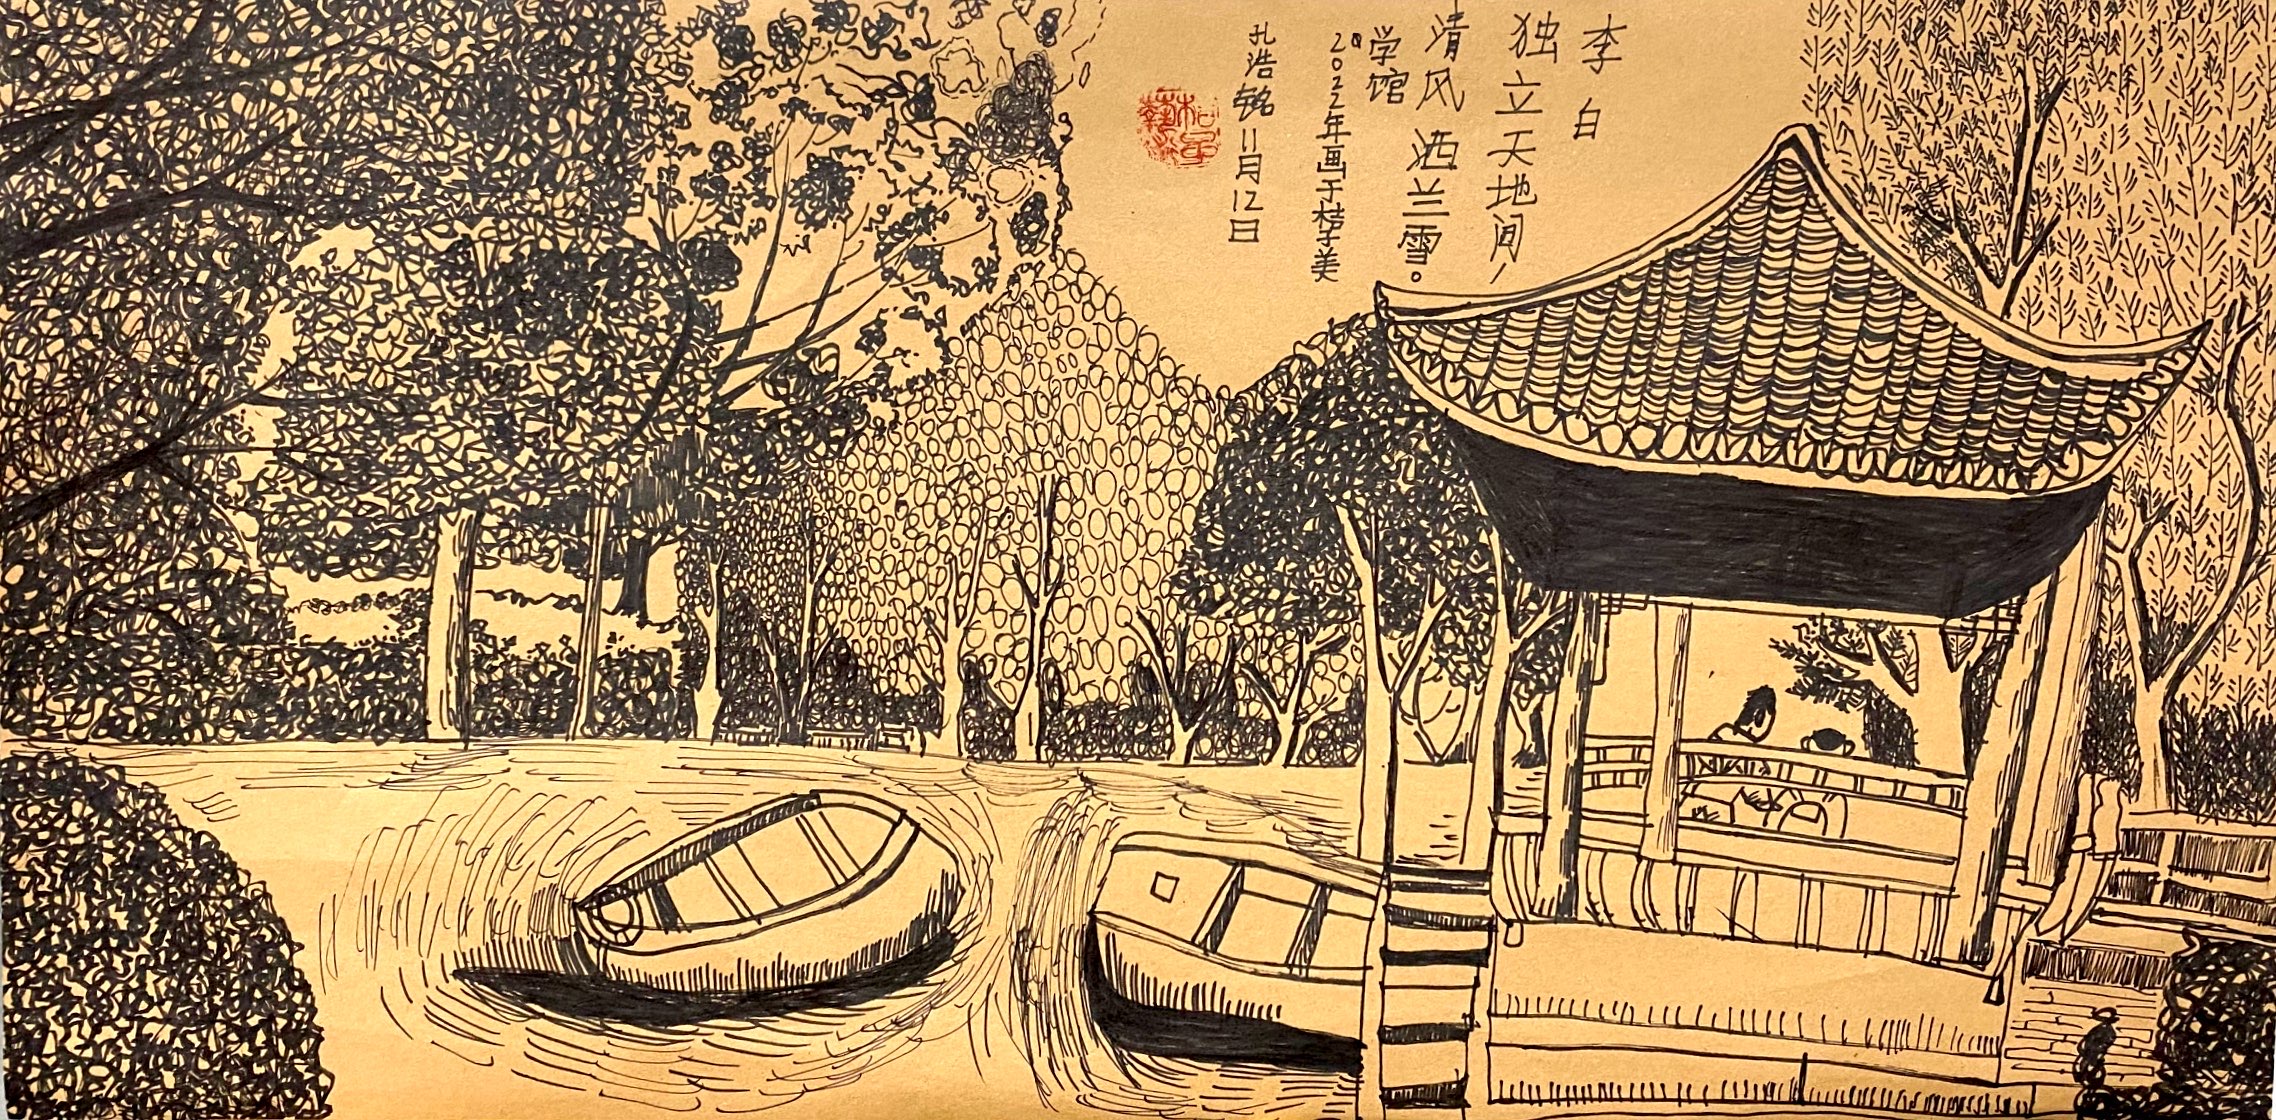 李白
独立天地间,
清风洒兰雪。
2022年画于美
学馆
孔浩铭 11月12日